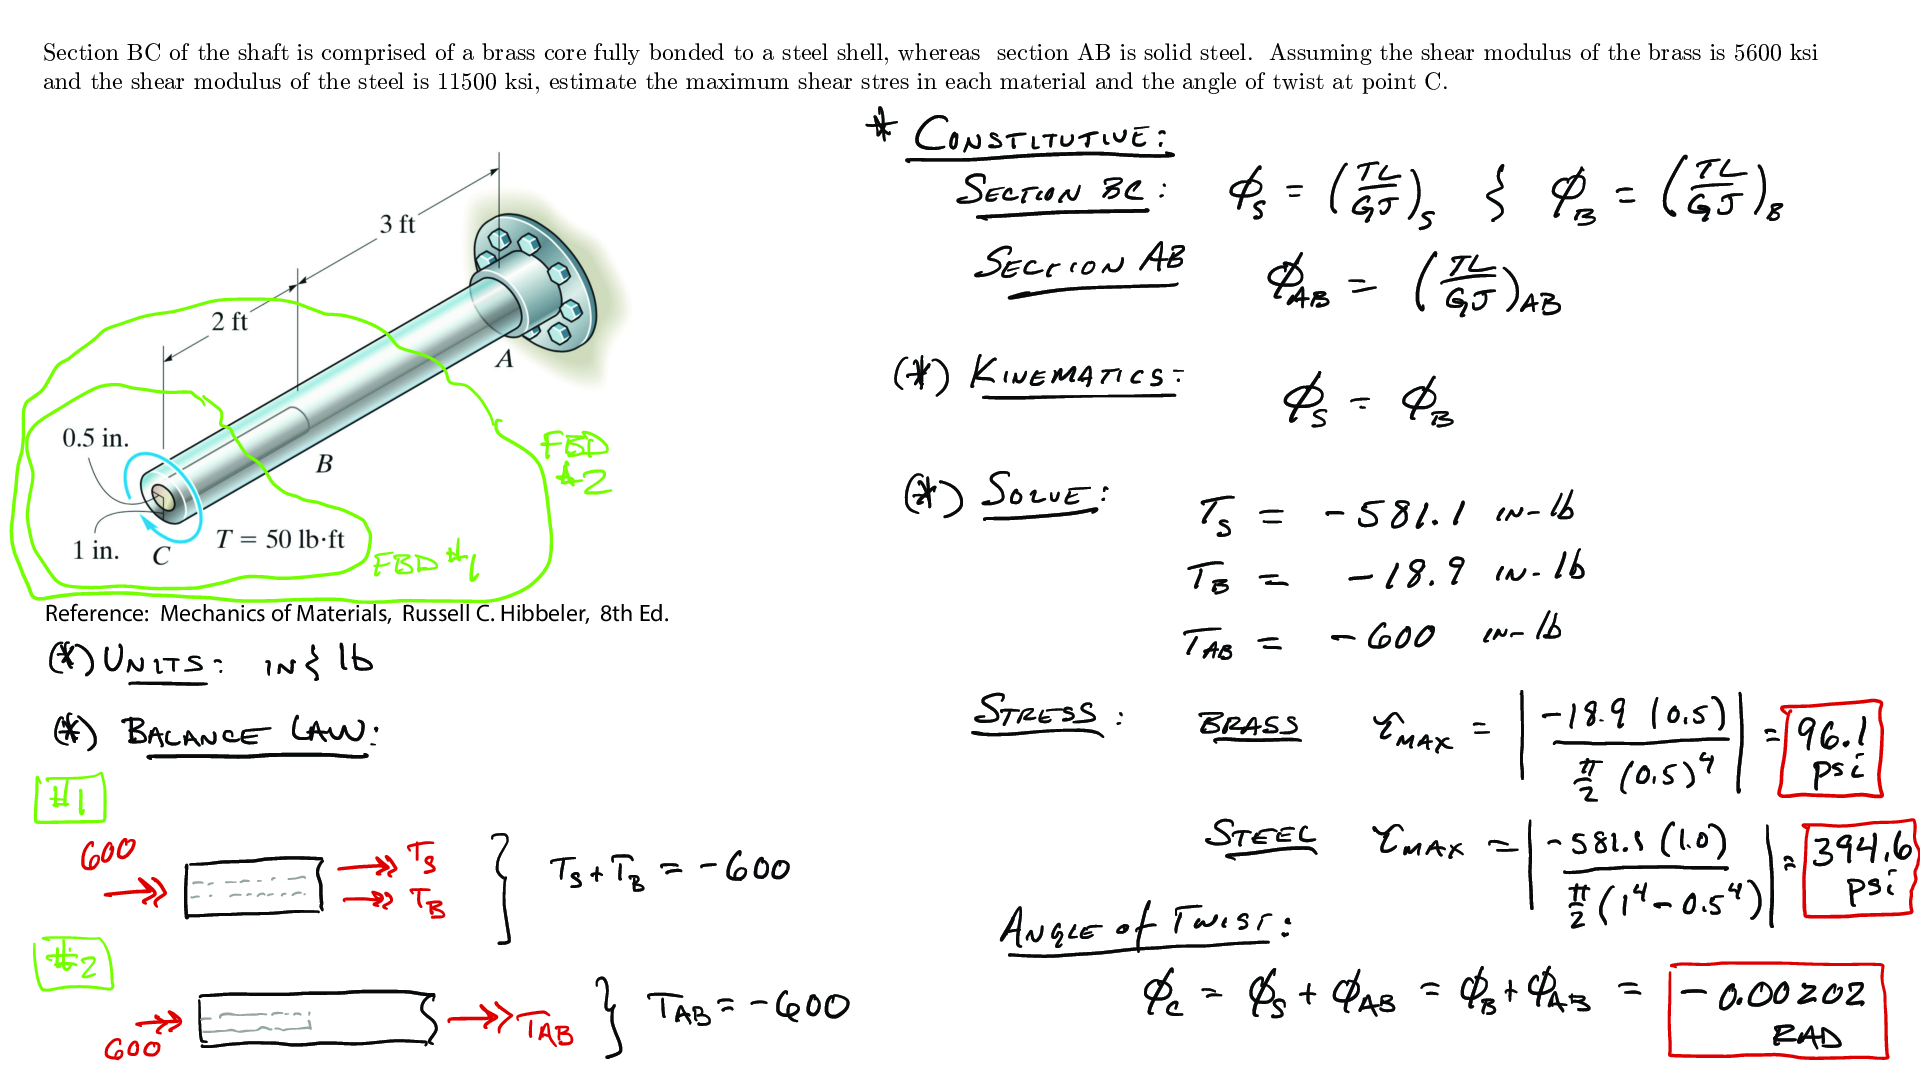 Section BC of the shaft is comprised of a brass core fully bonded to a steel shell, whereas section AB is solid steel. Assuming the shear modulus of the brass is 5600 ksi
and the shear modulus of the steel is 11500 ksi, estimate the maximum shear stres in each material and the angle of twist at point C.
3 ft
2 ft
A
0.5 in.
B
1 in.
C
T = 50 lb·ft
FBD #1
FBD
#2
Reference: Mechanics of Materials, Russell C. Hibbeler, 8th Ed.
(*) UNITS: IN & lb
(*) BALANCE LAW:
#1
600
T_S
T_B
T_S + T_B = -600
#2
600
T_AB
T_AB = -600
* CONSTITUTIVE:
SECTION BC: ϕ_S = (TL/GJ)_S & ϕ_B = (TL/GJ)_B
SECTION AB ϕ_AB = (TL/GJ)_AB
(*) KINEMATICS: ϕ_S = ϕ_B
(*) SOLVE: T_S = -581.1 IN-lb
T_B = -18.9 IN-lb
T_AB = -600 IN-lb
STRESS: BRASS τ_MAX = |-18.9 (0.5) / π/2 (0.5)^4| = 96.1 psi
STEEL τ_MAX = |-581.1 (1.0) / π/2 (1^4 - 0.5^4)| = 394.6 psi
ANGLE of TWIST:
ϕ_C = ϕ_S + ϕ_AB = ϕ_B + ϕ_AB = -0.00202
RAD